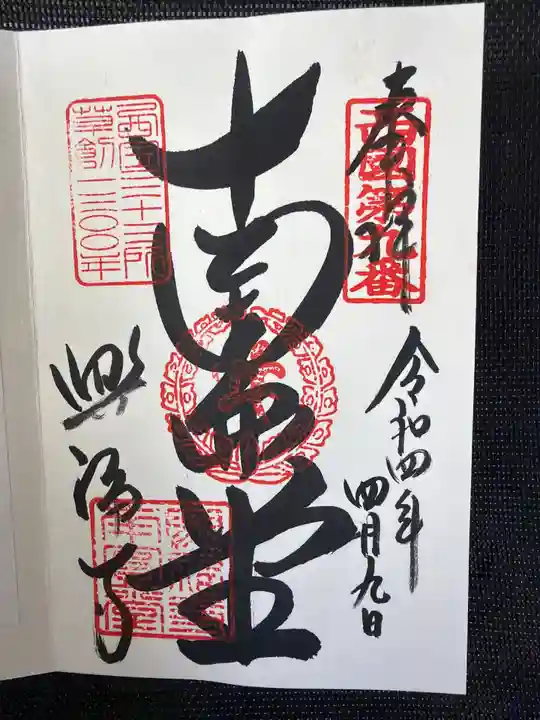 奉拝
西國第九番
令和四年
四月九日
南円堂
西国三十三所
草創一三〇〇年
興福寺